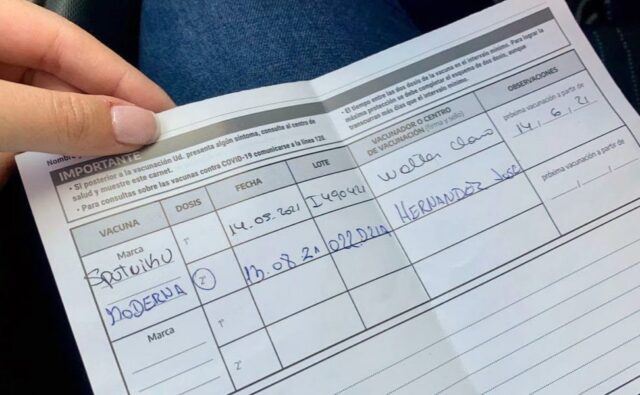 Nombre y
IMPORTANTE
• Si posterior a la vacunación Ud. presenta algún síntoma, consulte al centro de
salud y muestre este carnet.
• Para consultas sobre las vacunas contra COVID-19 comunicarse a la línea 120.
• El tiempo entre las dos dosis de la vacuna en el intervalo mínimo. Para lograr la
máxima protección se debe completar el esquema de dos dosis, aunque
transcurran más días que el intervalo mínimo.
VACUNA DOSIS FECHA LOTE VACUNADOR O CENTRO DE VACUNACIÓN (firma y sello) OBSERVACIONES
Marca 1° 14.05.2021 I490421 Walter próxima vacunación a partir de
Sputnik V 14.6.21
MODERNA 2° 13.08.21 022D21A HERNANDEZ JOSÉ próxima vacunación a partir de
Marca 1°
2°